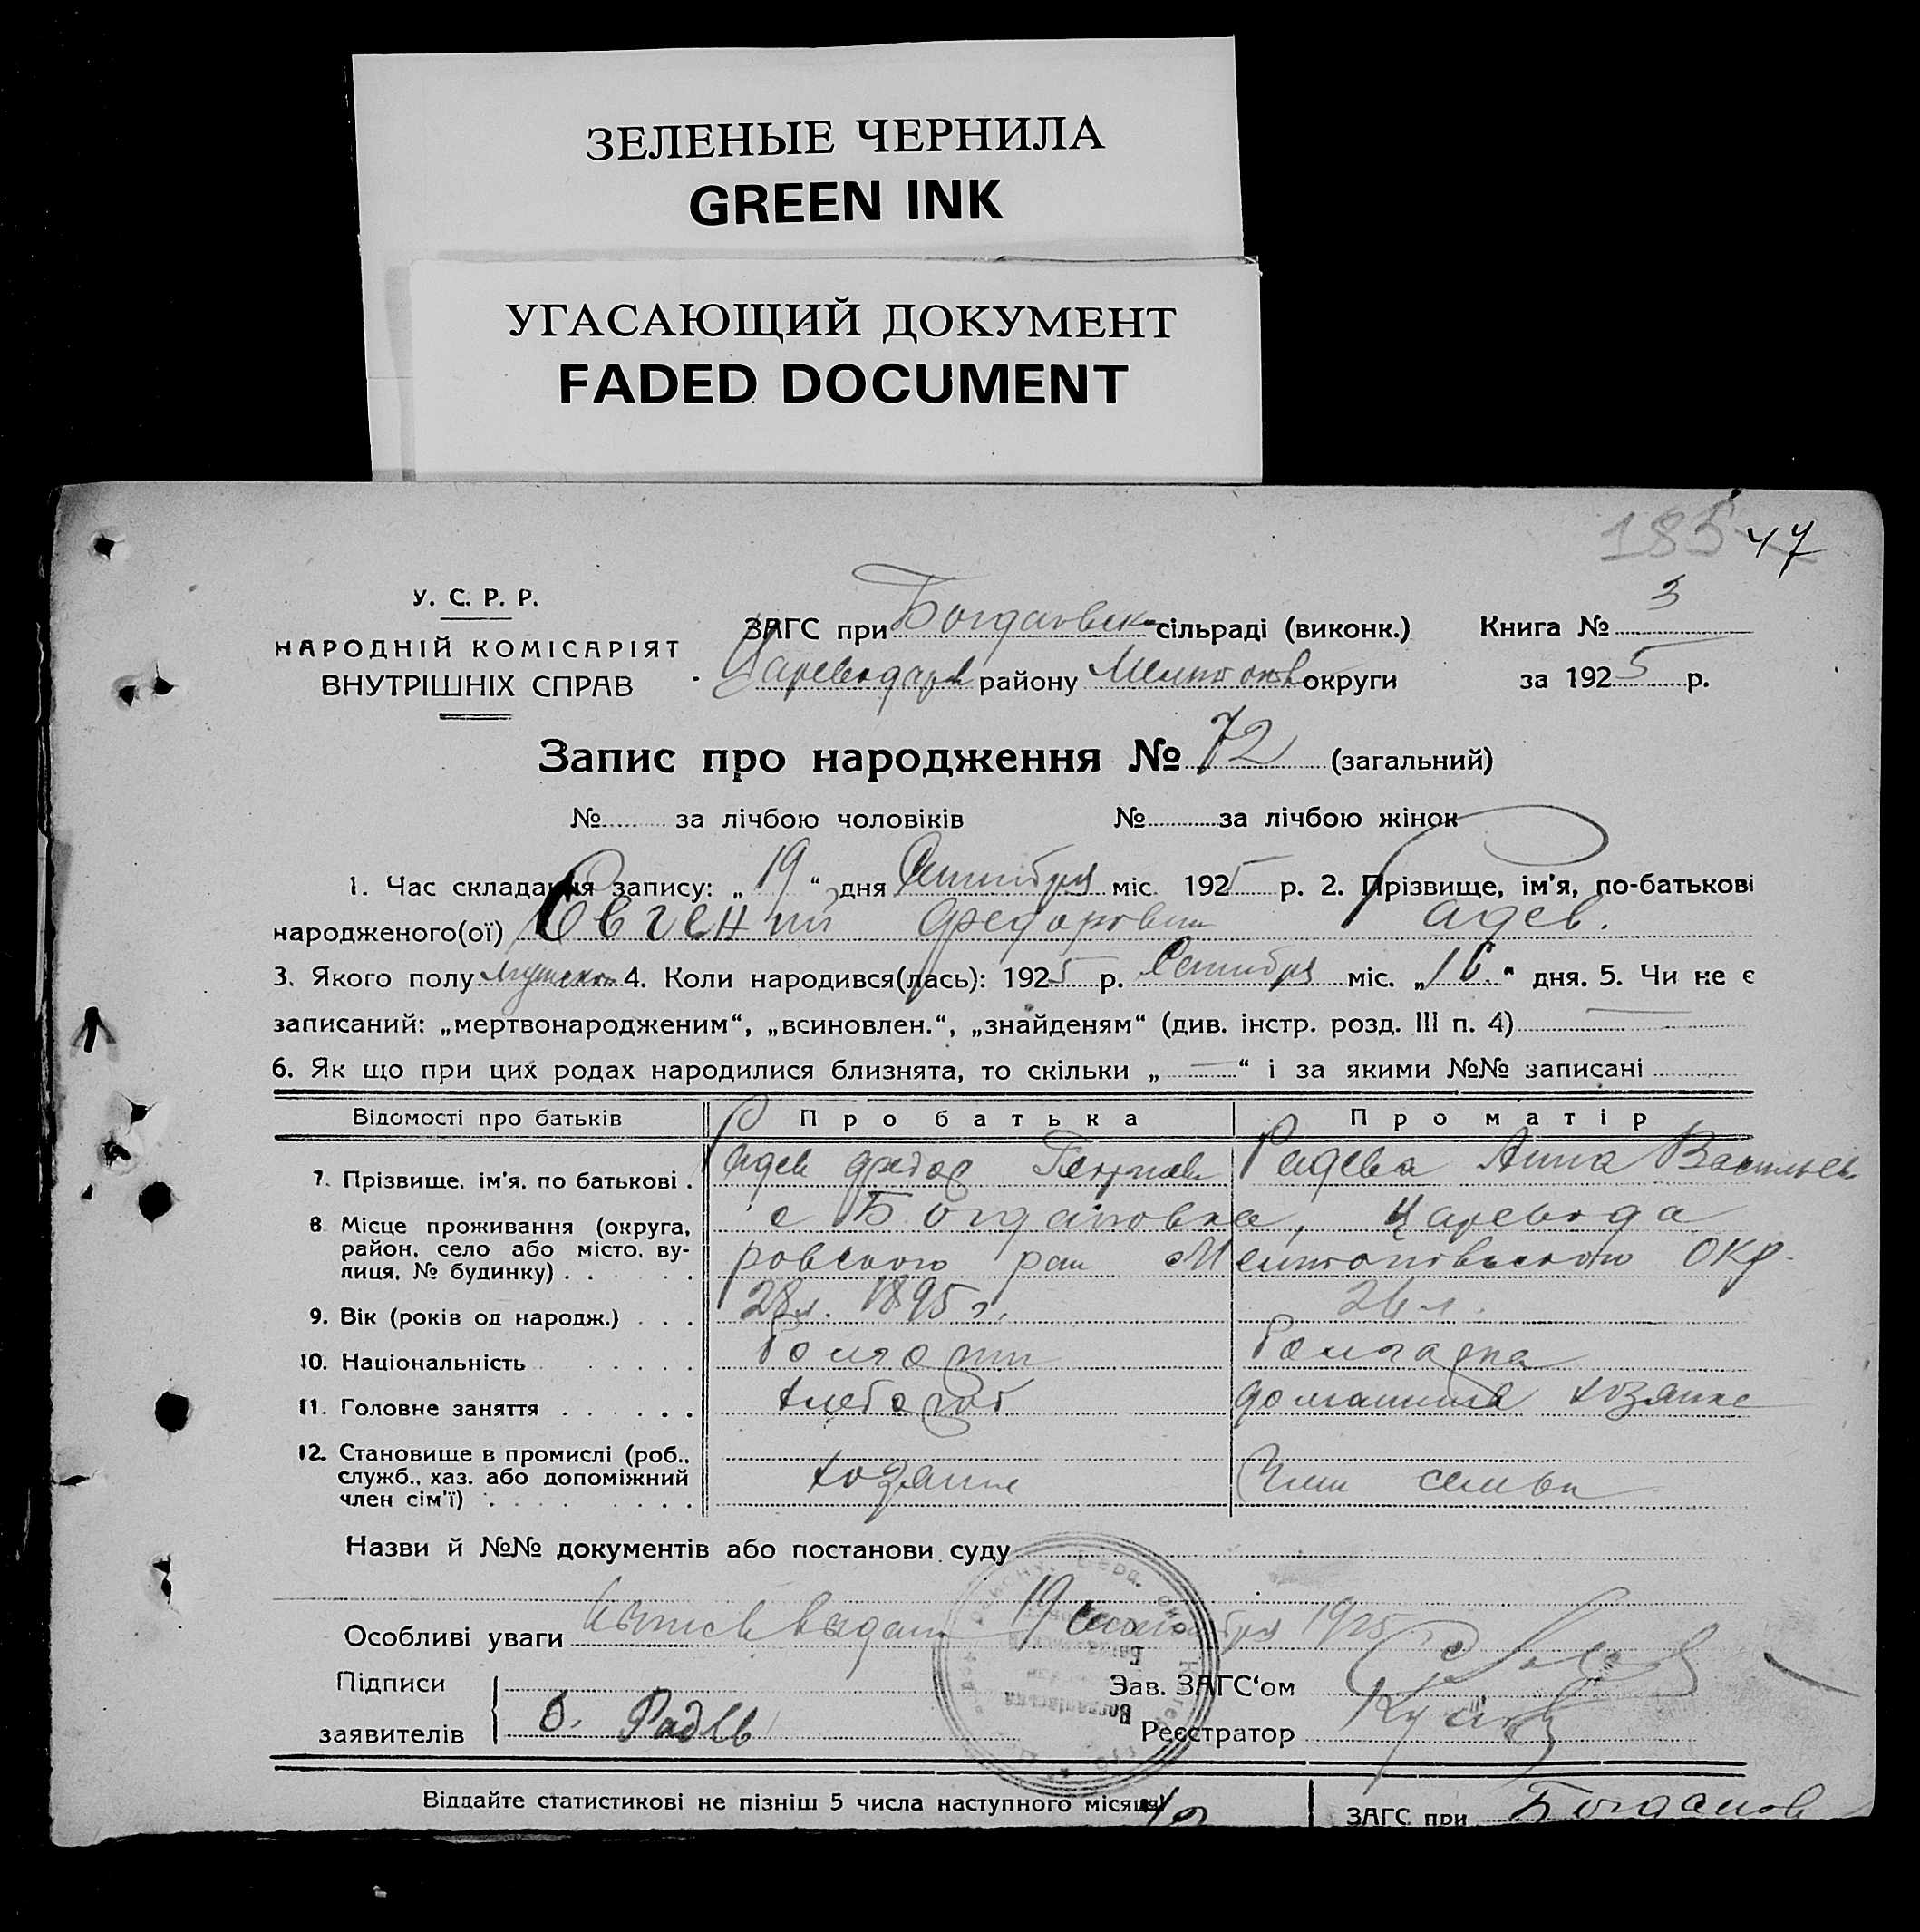 ЗЕЛЕНЫЕ ЧЕРНИЛА
GREEN INK
УГАСАЮЩИЙ ДОКУМЕНТ
FADED DOCUMENT
185 47
У. С. Р. Р.
НАРОДНІЙ КОМІСАРІЯТ
ВНУТРІШНІХ СПРАВ
ЗАГС при Богдановск сільраді (виконк.) Книга № 3
району округи за 1925 р.
Запис про народження № 72 (загальний)
№ за лічбою чоловіків № за лічбою жінок
1. Час складання запису: „19“ дня Сентября міс. 1925 р. 2. Прізвище, ім'я, по-батькові
народженого(ої) Евгений Федорович Радев.
3. Якого полу 4. Коли народився(лась): 1925 р. Сентября міс. „16“ дня. 5. Чи не є
записаний: „мертвонародженим“, „всиновлен.“, „знайденям“ (див. інстр. розд. III п. 4)
6. Як що при цих родах народилися близнята, то скільки „—“ і за якими №№ записані
Відомості про батьків Про батька Про матір
7. Прізвище, ім'я, по батькові . Радев Федор Радева Анна Васильев
8. Місце проживання (округа, район, село або місто, вулиця, № будинку) . . с Богдановка, Царевода
ровского рай Мелитопольского окр.
9. Вік (років од народж.) . . . 28 л. 1895 г. 26 л.
10. Національність Болгарин Болгарка
11. Головне заняття . . . . . . хлебороб домашняя хозяйка
12. Становище в промислі (роб., служб., хаз. або допоміжний член сім'ї) . хозяин Член семьи
Назви й №№ документів або постанови суду
Особливі уваги выдан 19 сентября 1925
Підписи Зав. ЗАГС‘ом
заявителів Ф. Радев Реєстратор
Віддайте статистикові не пізніш 5 числа наступного місяця ЗАГС при Богданов